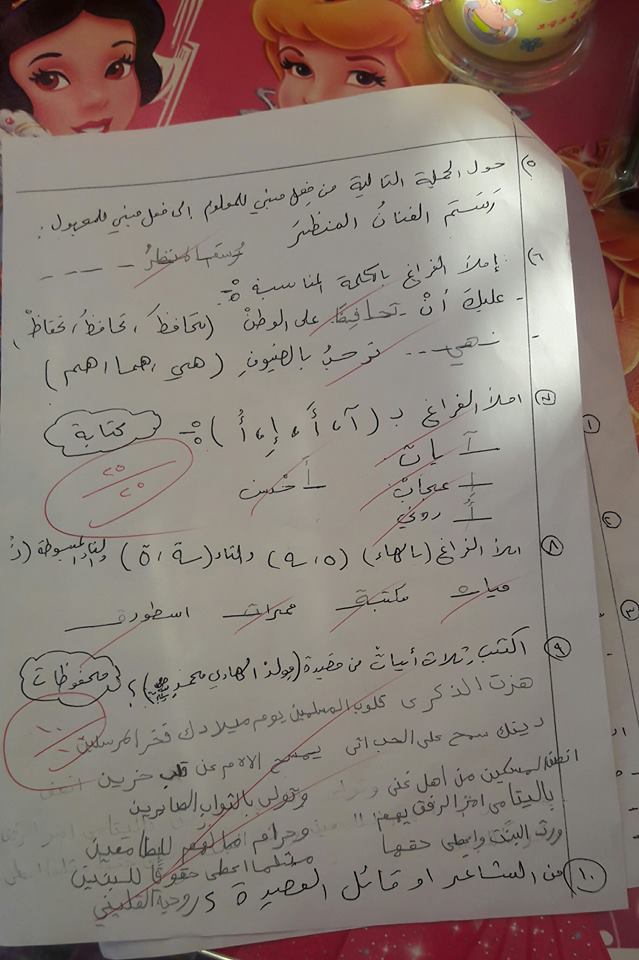 ٥) حول الجملة التالية من فعل مبني للمعلوم إلى فعل مبني للمجهول :
رَسَمَ الفنانُ المنظرَ
رُسمَ المنظرُ - - - -
٦) إملأ الفراغ بالكلمة المناسبة :-
- عليكَ أنْ تحافظَ على الوطنْ (تحافظَ، تحافظُ، تحافظْ)
- هي ترحبُ بالضيوفِ (هي، هما، هم)
٧) املأ الفراغ بـ (آ، أَ، إِ، أُ) :-
كتابة
آيات
إعجاب
أحسن
أُ
٢٥
٢٥
٨ املأ الفراغ (بالهاء) (ه، ـه) والتاء (ـة، ة) والتاء المبسوطة (ت
مكتبة
ممرات
اسطورة
٩ اكتب ثلاث أبيات من قصيدة (مولد الهادي محمد ﷺ) ؟
محفوظات
١٠
١٠
هزت الذكرى قلوب المسلمين يوم ميلادك فخر المرسلين
دينك سمح على الحب اتى يمسح الالام عن قلب حزين
انصف المسكين من أهل غنى وتولى بالثواب الصابرين
باليتامى امر الرفق بهم وحرام اموالهم للطامعين
ورث البنت واعطى حقها مثلما اعطى حقوقا للبنين
١٠ من الشاعر او قائل القصيدة ؟ روحية القليني
١
٢
٣